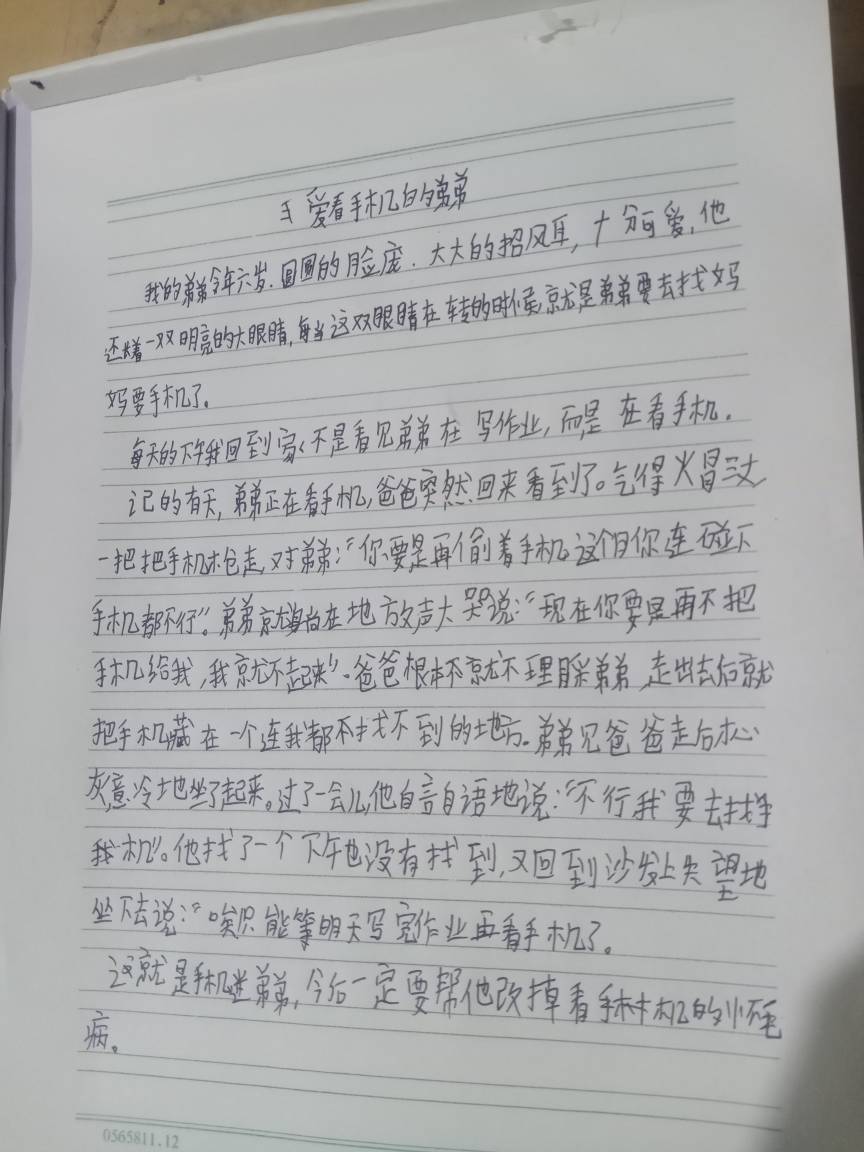 爱看手机的弟弟
我的弟弟今年六岁.圆圆的脸庞.大大的招风耳,十分可爱,他
还长着一双明亮的大眼睛,每当这双眼睛在转的时候,就是弟弟要去找妈
妈要手机了。
每天的下午我回到家,不是看见弟弟在写作业,而是在看手机.
记的有天,弟弟正在看手机,爸爸突然回来看到了。气得火冒三丈
一把把手机抢走,对弟弟:“你要是再偷着手机这个月你连碰下
手机都不行”。弟弟就躺在地方放声大哭说:“现在你要是再不把
手机给我,我就不起来”.爸爸根本不就不理睬弟弟,走出去后就
把手机藏在一个连我都不找不到的地方.弟弟见爸爸走后心
灰意冷地坐了起来。过了一会儿,他自言自语地说:“不行我要去找手
机”。他找了一个下午也没有找到,又回到沙发上失望地
坐下去说:“唉只能等明天写完作业再看手机了。
这就是手机迷弟弟,今后一定要帮他改掉看手机的小毛
病。
0565811.12